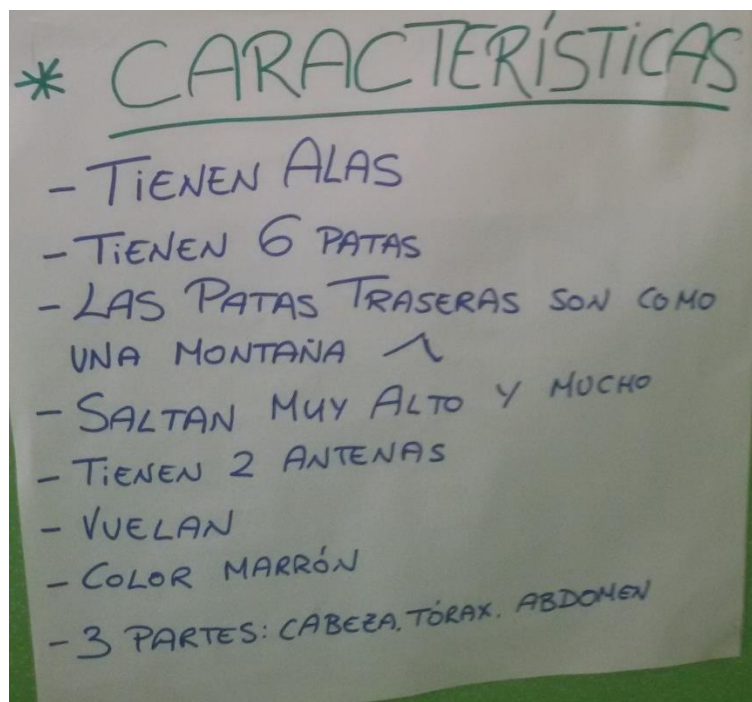 * CARACTERÍSTICAS
- TIENEN ALAS
- TIENEN 6 PATAS
- LAS PATAS TRASERAS SON COMO
UNA MONTAÑA
- SALTAN MUY ALTO Y MUCHO
- TIENEN 2 ANTENAS
- VUELAN
- COLOR MARRÓN
- 3 PARTES: CABEZA. TÓRAX. ABDOMEN